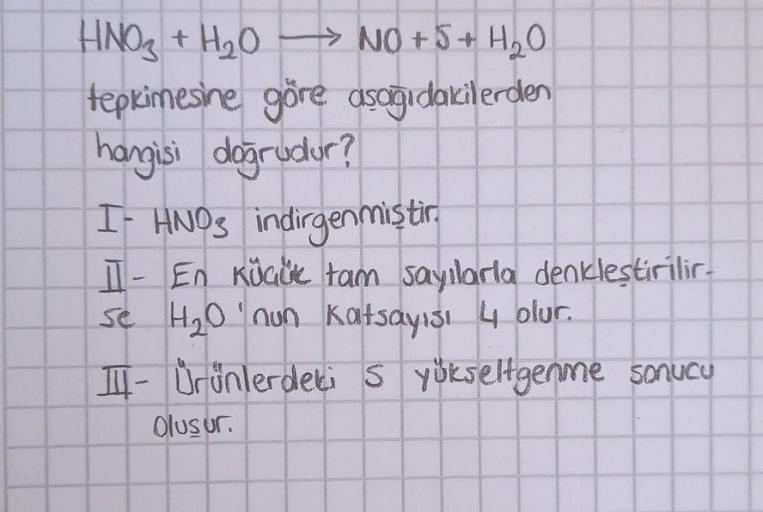 HNO₃ + H₂O ⟶ NO + S + H₂O
tepkimesine göre aşağıdakilerden
hangisi doğrudur?
I- HNO₃ indirgenmiştir.
II- En küçük tam sayılarla denkleştirilir-
se H₂O'nun katsayısı 4 olur.
III- Ürünlerdeki S yükseltgenme sonucu
oluşur.